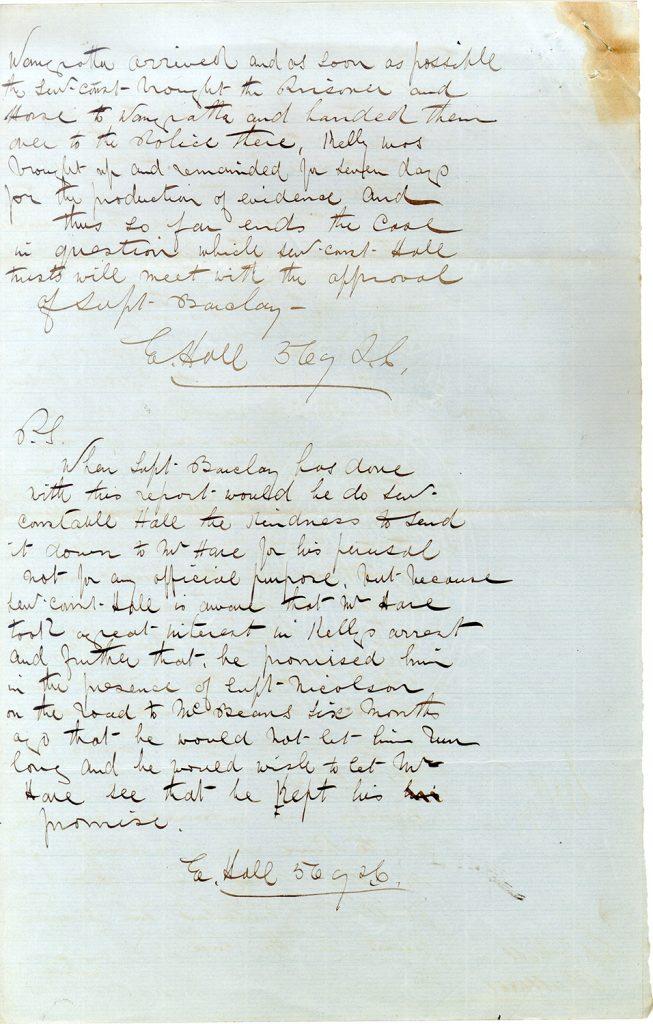 Wangratta arrived and as soon as possible
the Sen-const- brought the Prisoner and
Horse to Wangratta and handed them
over to the Police there, Kelly was
brought up and remainded for seven days
for the production of evidence and
thus so far ends the Case
in question which Sen-const- Hall
trusts will meet with the approval
of Supt- Barclay -
E. Hall 5tcg S.C.
P.S.
When Supt- Barclay has done
with this report would he do Sen-
constable Hall the kindness to send
it down to Mr Hare for his perusal
not for any official purpose, but because
Sen-const-Hall is aware that Mr Hare
took a great interest in Kellys arrest
and further that, he promised him
in the presence of Supt-Nicolson
on the road to McBeans Six Months
ago that he would not let him run
long and he would wish to let Mr
Hare see that he kept his
promise.
E. Hall